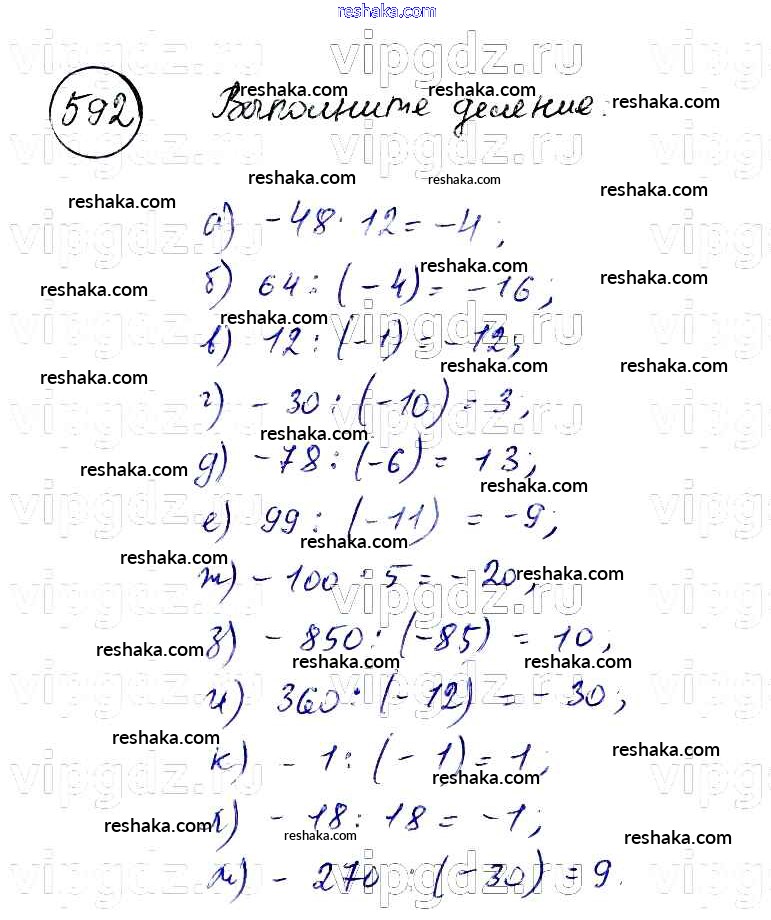 reshaka.com
592 Выполните деление:
а) -48 : 12 = -4;
б) 64 : (-4) = -16;
в) 12 : (-1) = -12;
г) -30 : (-10) = 3;
д) -78 : (-6) = 13;
е) 99 : (-11) = -9;
ж) -100 : 5 = -20;
з) -850 : (-85) = 10;
и) 360 : (-12) = -30;
к) -1 : (-1) = 1;
л) -18 : 18 = -1;
м) -270 : (-30) = 9.
vipgdz.ru